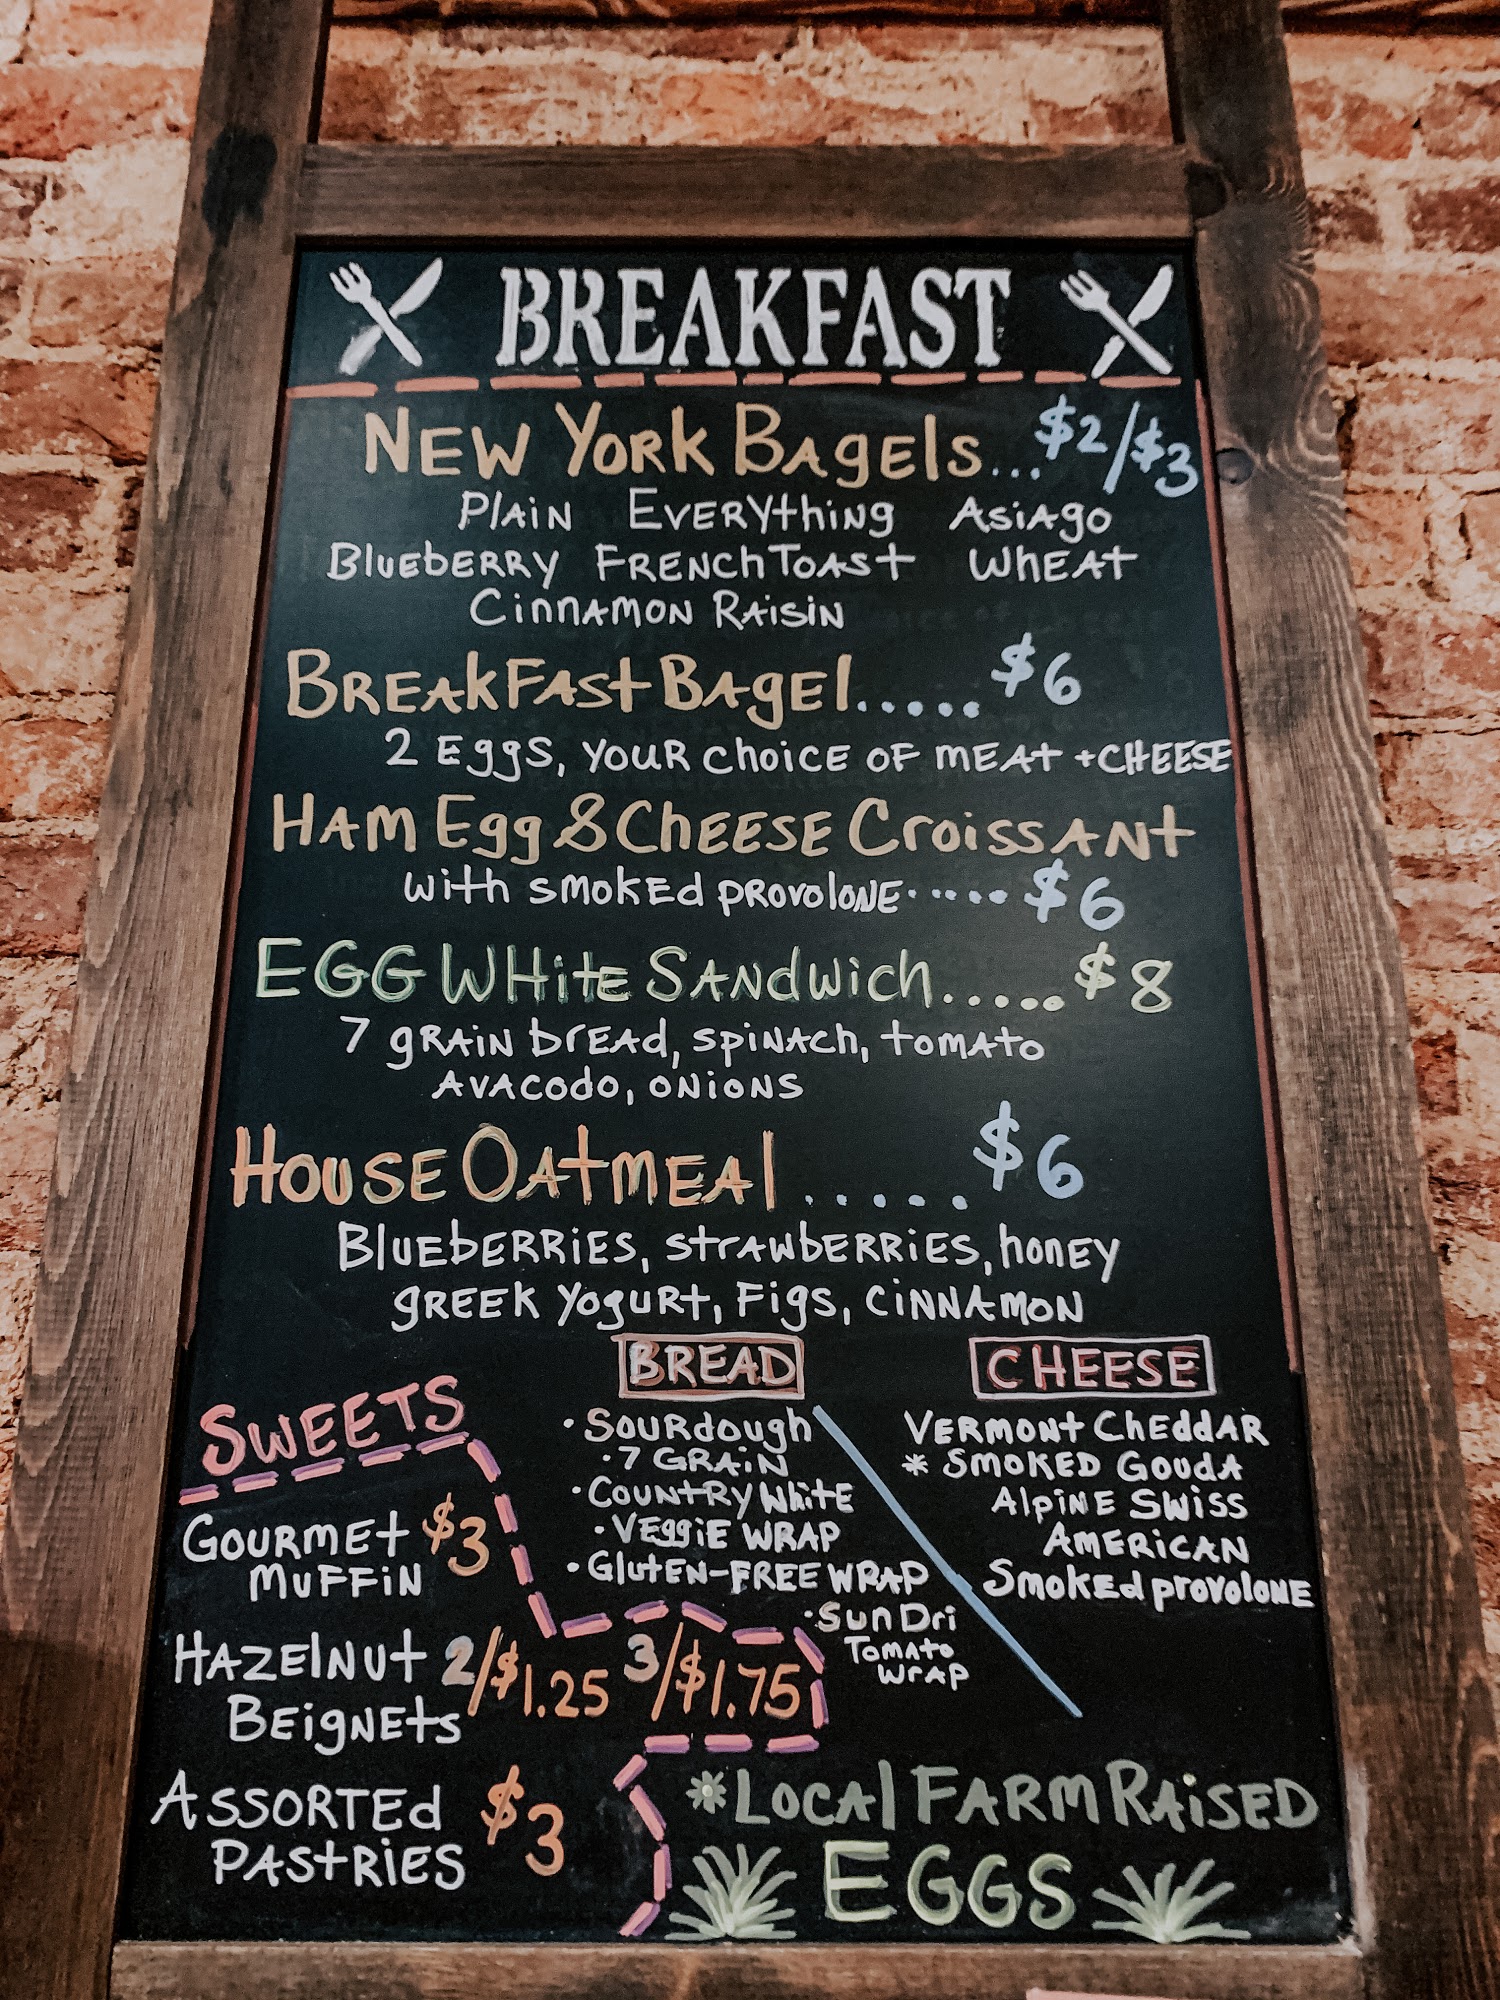 BREAKFAST
NEW YORK BAgEls...$2/$3
PlAiN EVERYthiNg AsiAgo
BluebERRY FRENChTOASt WhEAt
CinnAMON RAiSiN
BREAkFASt BAgEl.....$6
2 Eggs, YOUR ChOiCE OF MEAt +CHEESE
HAM Egg & ChEESE CroissANt
with smokEd pROVOloNE.....$6
EGG WHitE SANdwich.....$8
7 gRAiN brEAd, spiNACh, tOMAtO
AVACOdo, ONiONS
HOUSE OAtMEAl.....$6
BluEbERRiES, strAwbERRiES, honEY
gREEK YogURt, Figs, CiNNAMON
SWEETS
GOURMEt MUFFiN $3
HAZElNUt BEigNEts 2/$1.25 3/$1.75
ASSORTEd PAStRiES $3
BREAD
·SOURdough
·7 GRAiN
·COUNtRY WhitE
·VEggiE WRAP
·GlutEN-FREE WRAP
·SunDri
TOMAto
WrAp
CHEESE
VERMONt ChEddAR
* SMOKED GOUdA
AlpiNE SWiSS
AMERiCAN
SmokEd pROVOloNE
*LOCAl FARM RAiSED
EGGS